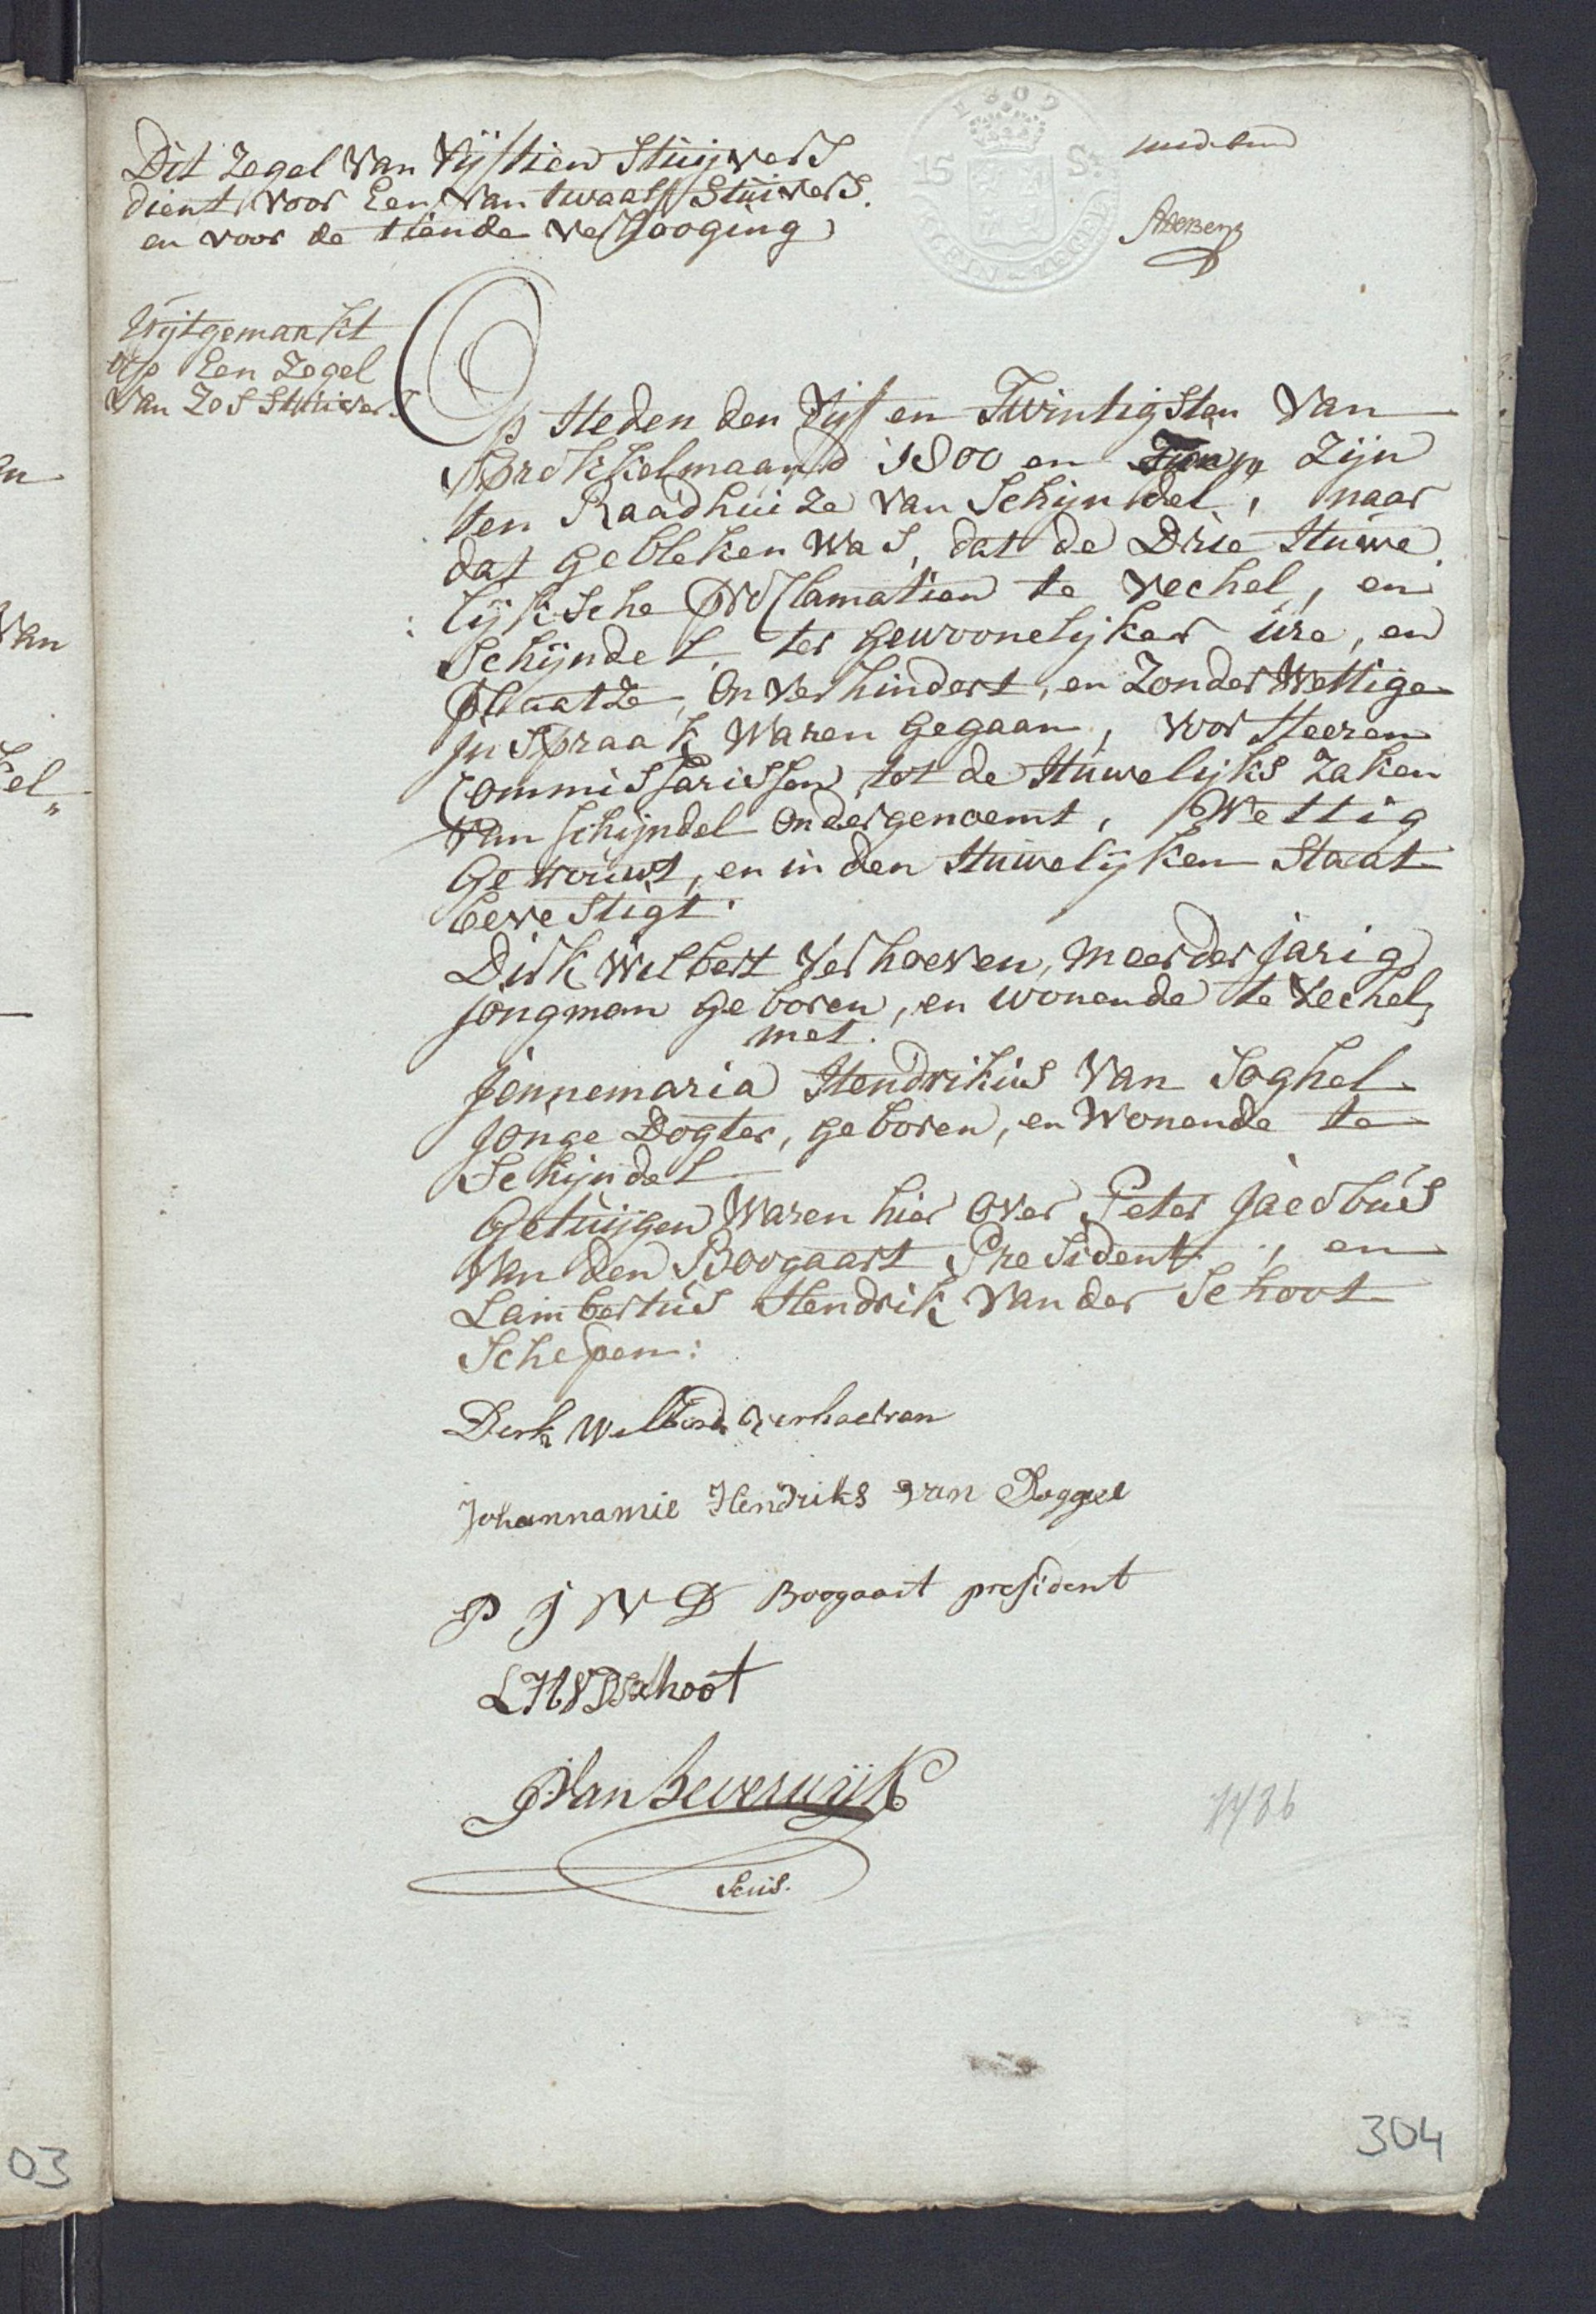 Dit Zegel Van Vijftien Stuijvers
dient voor Een, Van twaalf Stuivers.
en voor de tiende verhooging
1809
15 S:
KLEIN-ZEGEL
Uijtgemaakt
op Een Zegel
Van Zes Stuivers
Op Heden den Vijf en Twintigsten Van
Sprokkelmaand 1800 en Zijn
ten Raadhuize Van Schijndel, naar
dat gebleken was, dat de Drie Huwe
:lijksche Proclamatien te Vechel, en
Schijndel, ter gewoonelijker ure, en
Plaatze, Onverhindert, en Zonder Wettige
Inspraak Waren gegaan, voor Heeren
Commissarissen tot de Huwelijks Zaken
Van Schijndel Ondergenoemt, Wettig
Getrouwt, en in den Huwelijken Staat
bevestigt.
Dirk Wilbert Verhoeven, meerderjarig
jongman geboren, en wonende te Vechel,
met.
Jennemaria Hendrikus Van Boghel
Jonge Dogter, geboren, en Wonende te
Schijndel
Getuijgen Waren hier Over Peter Jacobus
Van den Boogaart President, en
Lambertus Hendrik Van der Schoot
Schepen:
Derk Wilbord verhoeven
Johannamie Hendriks van Boggel
P J V D Boogaart president
L H V D Schoot
J Van Beverwijk
Secris.
304
en
Van
el„
03